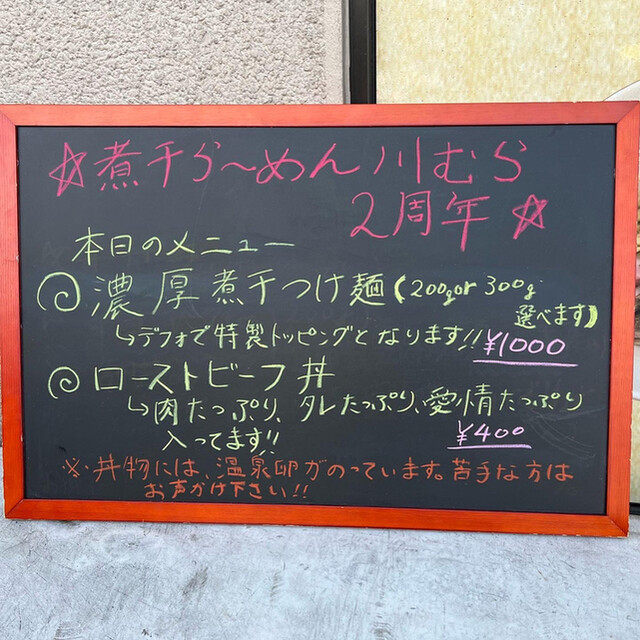 ☆煮干ら〜めん川むら
2周年☆
本日のメニュー
濃厚煮干つけ麺(200gor 300g
選べます)
↳デフォで特製トッピングとなります!! ¥1000
ローストビーフ丼
↳肉たっぷり、タレたっぷり、愛情たっぷり
入ってます!! ¥400
※丼物には、温泉卵がのっています。苦手な方は
お声がけ下さい!!